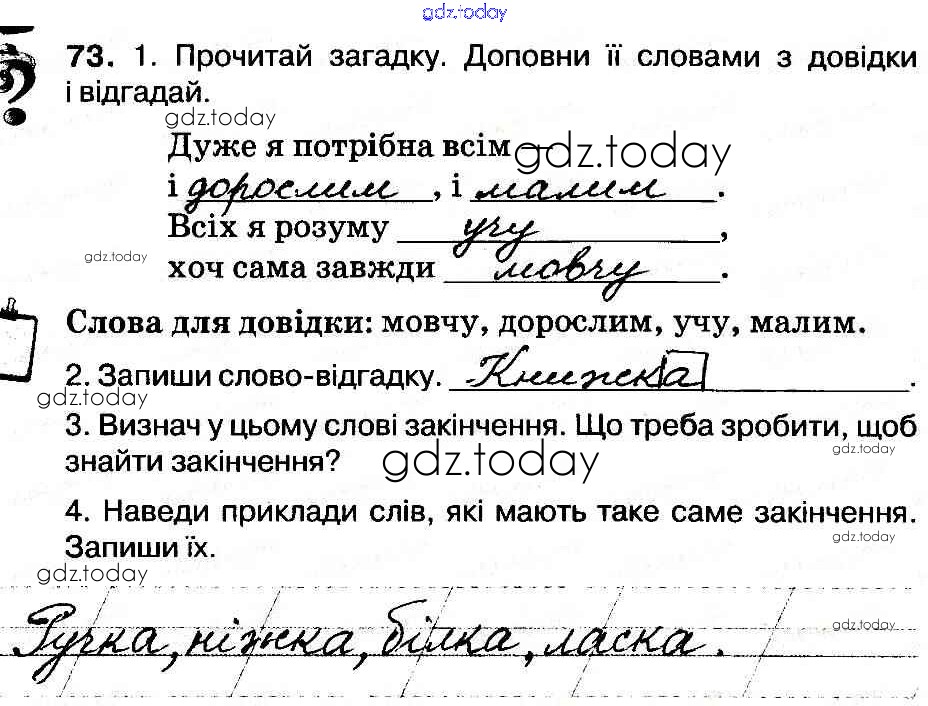 gdz.today
73. 1. Прочитай загадку. Доповни її словами з довідки
і відгадай.
gdz.today
Дуже я потрібна всім —
gdz.today
і дорослим, і малим.
Всіх я розуму учу,
gdz.today
хоч сама завжди мовчу.
Слова для довідки: мовчу, дорослим, учу, малим.
2. Запиши слово-відгадку. Книжка.
gdz.today
3. Визнач у цьому слові закінчення. Що треба зробити, щоб
gdz.today
знайти закінчення?
gdz.today
4. Наведи приклади слів, які мають таке саме закінчення.
gdz.today
Запиши їх.
gdz.today
Ручка, ніжка, білка, ласка.
gdz.today